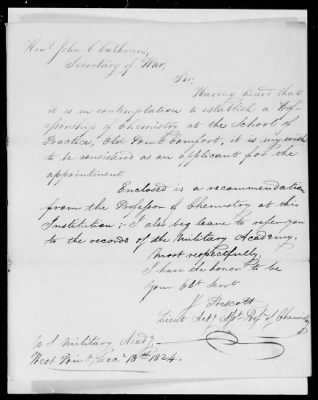 Hon.ᵇˡ John C Calhoun,
Secretary of War,
Sir,
Having heard that
it is in contemplation to establish a Pro-
fessorship of Chemistry at the School of
Practice, Old Point Comfort, it is my wish
to be considered as an applicant for the
appointment
Enclosed is a recommendation
from the Professor of Chemistry at this
Institution; I also beg leave to refer you
to the records of the Military Academy.
Most respectfully,
I have the honor to be
your Obt Servt
J Prescott
Lieut Arty Asst Prof of Chemistry
U S Military Acady
West Point, Decr 13th 1824.